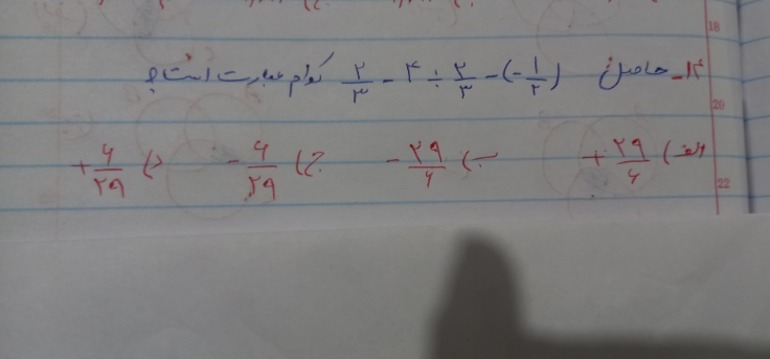 18
۱۴_ حاصل ۲/۳ - ۴ ÷ ۲/۳ - (-۱/۲) کدام عبارت است؟
20
الف) +۲۹/۶ ب) -۲۹/۶ ج) -۶/۲۹ د) +۶/۲۹
22